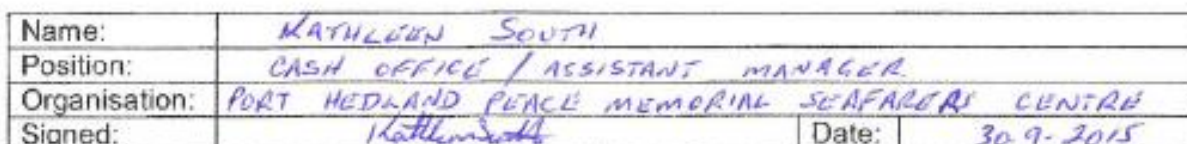 Name: KATHLEEN SOUTH
Position: CASH OFFICE / ASSISTANT MANAGER
Organisation: PORT HEDLAND PEACE MEMORIAL SEAFARERS CENTRE
Signed: Kathleen South Date: 30.9-2015